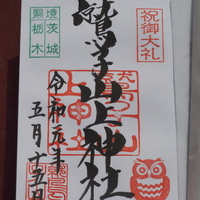 祝御大礼
鷲子山上神社
境茨城
県栃木
令和元年
五月十五日